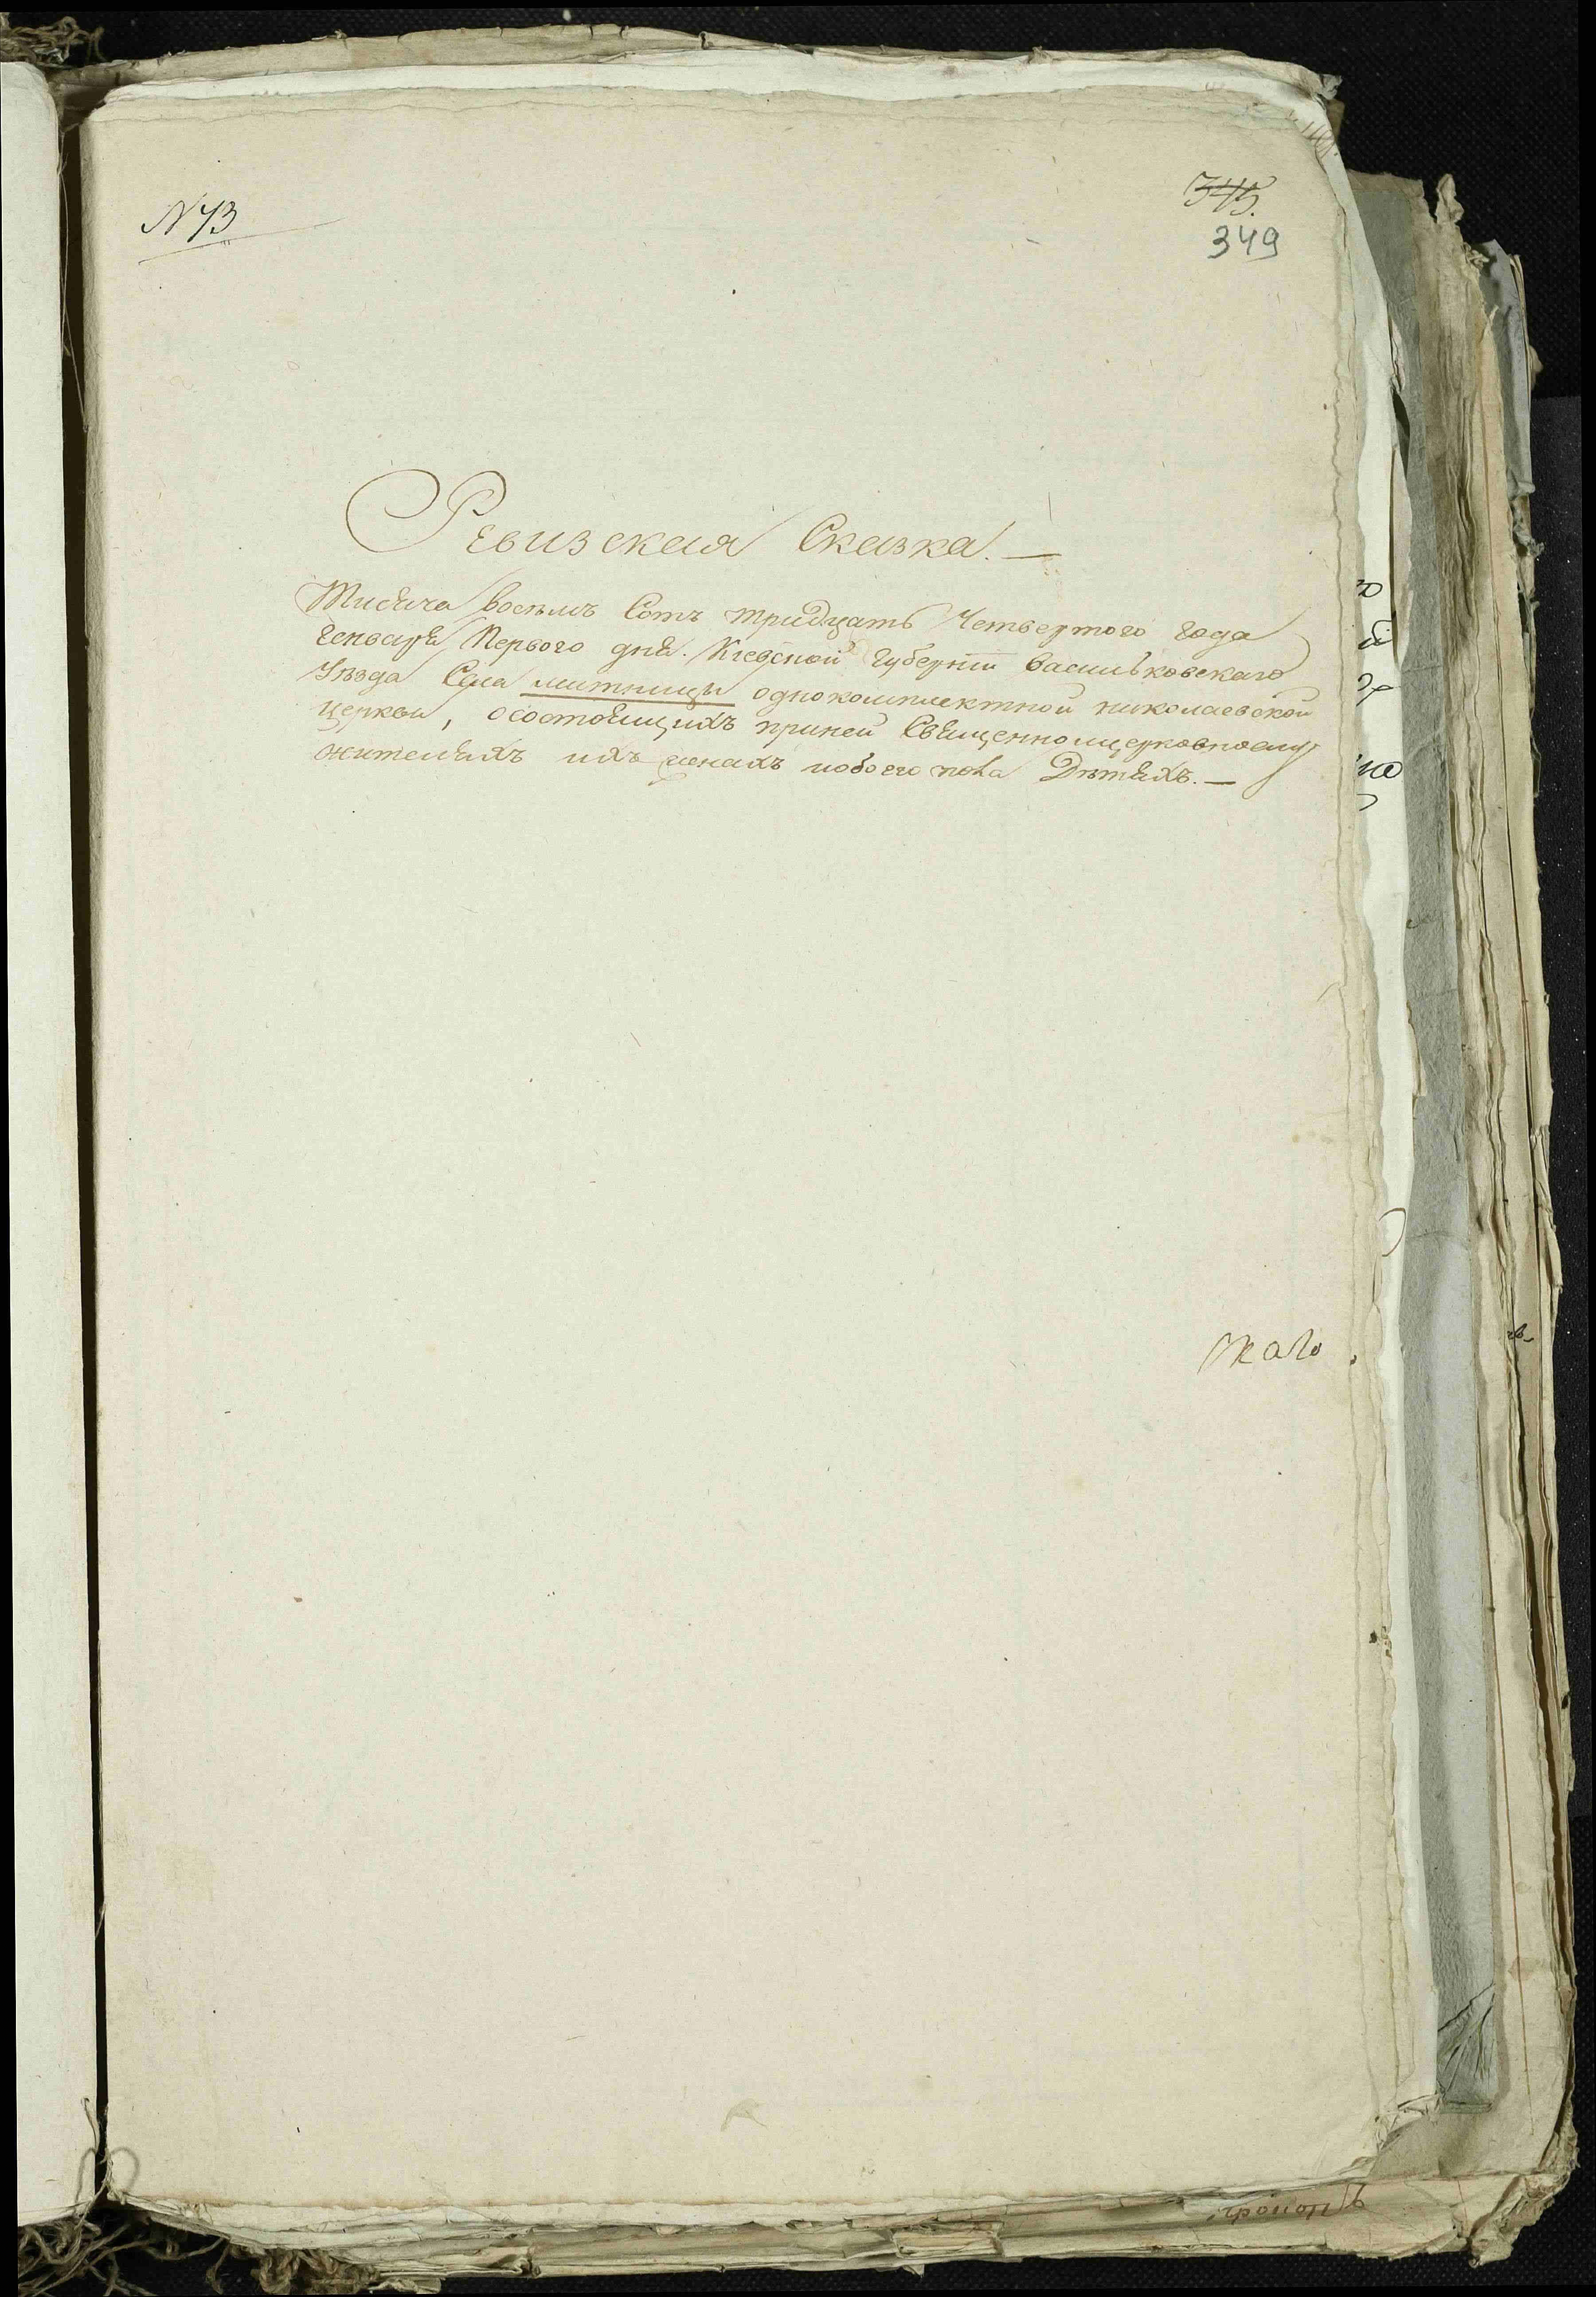 N 73
345.
349
Ревизская Сказка. —
Тисяча восемъ Сотъ тридцать Четвертого года
Генваря Первого дня. Кіевской Губерніи Васильковскаго
Уѣзда Села митници однокомплектной николаевской
церкви, осостоящихъ приней Священноицерковнослу
жителяхъ ихъ женахъ иобоего пола Дѣтяхъ. —
каго